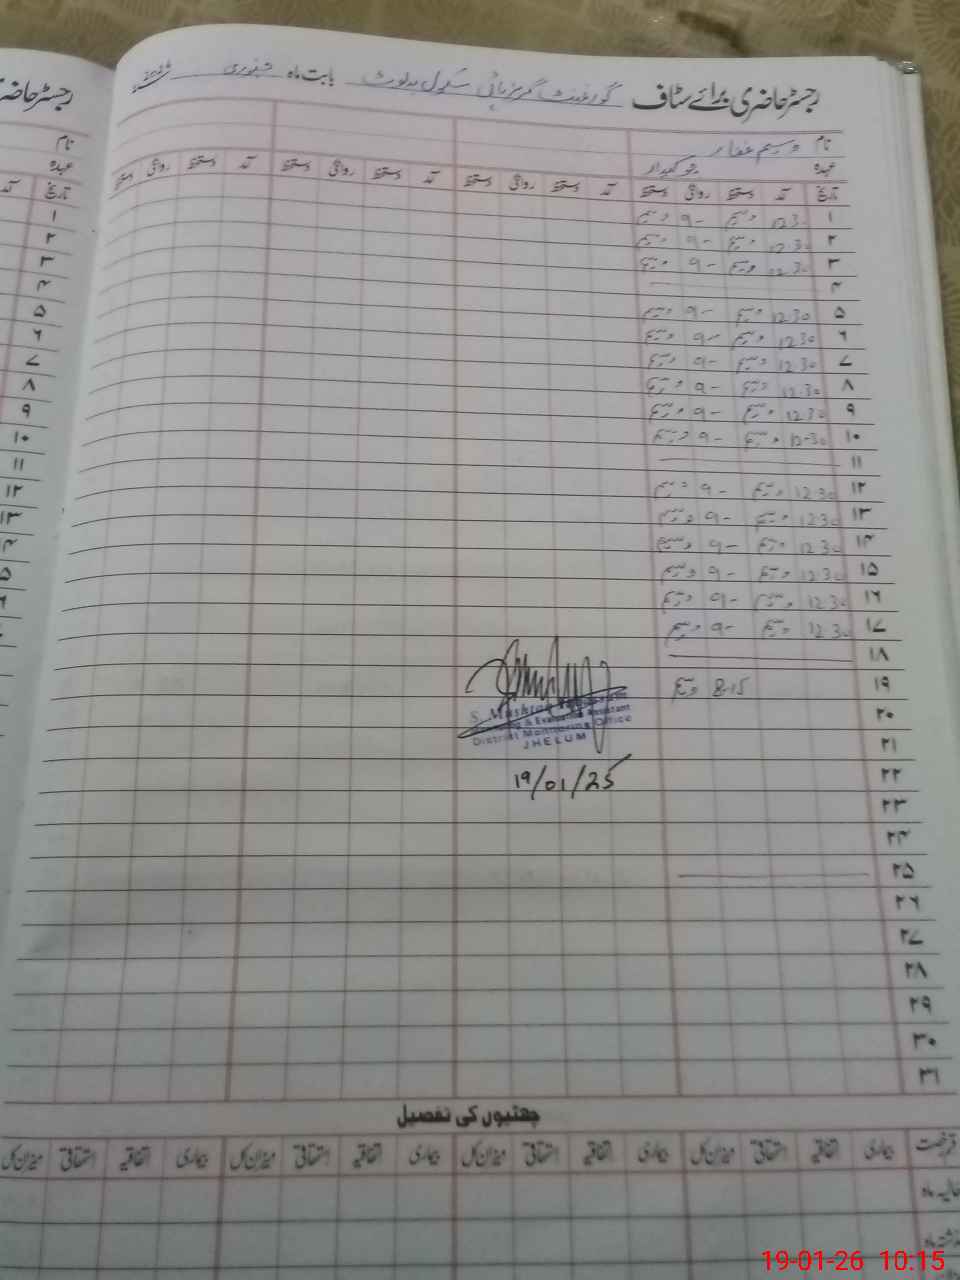 رجسٹر حاضری برائے سٹاف گورنمنٹ گرلز ہائی سکول بابت ماہ جنوری
نام وسیم غفار
عہدہ چوکیدار
تاریخ آمد دستخط روانگی دستخط آمد دستخط روانگی دستخط آمد دستخط روانگی دستخط آمد دستخط روانگی دستخط
۱ 12.30 وسیم 9- وسیم
۲ 12.30 وسیم 9- وسیم
۳ 12.30 وسیم 9- وسیم
۴
۵ 12.30 وسیم 9- وسیم
۶ 12.30 وسیم 9- وسیم
۷ 12.30 وسیم 9- وسیم
۸ 12.30 وسیم 9- وسیم
۹ 12.30 وسیم 9- وسیم
۱۰ 12-30 وسیم 9- وسیم
۱۱
۱۲ 12.30 وسیم 9- وسیم
۱۳ 12.30 وسیم 9- وسیم
۱۴ 12.30 وسیم 9- وسیم
۱۵ 12.30 وسیم 9- وسیم
۱۶ 12.30 وسیم 9- وسیم
۱۷ 12.30 وسیم 9- وسیم
۱۸
۱۹ 8.15 وسیم
۲۰
S. Mushtaq
Monitoring & Evaluation Assistant
District Monitoring Office
JHELUM
۲۱
19/01/25
۲۲
۲۳
۲۴
۲۵
۲۶
۲۷
۲۸
۲۹
۳۰
۳۱
چھٹیوں کی تفصیل
قسم رخصت بیماری اتفاقیہ استحقاقی میزان کل بیماری اتفاقیہ استحقاقی میزان کل بیماری اتفاقیہ استحقاقی میزان کل بیماری اتفاقیہ استحقاقی میزان کل
حالیہ ماہ
گذشتہ ماہ
رجسٹر حاضری
نام
عہدہ
تاریخ آمد
۱
۲
۳
۴
۵
۶
۷
۸
۹
۱۰
۱۱
۱۲
۱۳
19-01-26 10:15